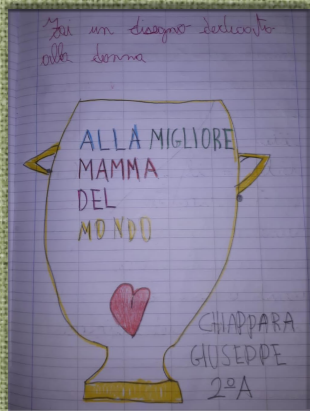 Fai un disegno dedicato
alla donna
ALLA MIGLIORE
MAMMA
DEL
MONDO
CHIAPPARA
GIUSEPPE
2ªA